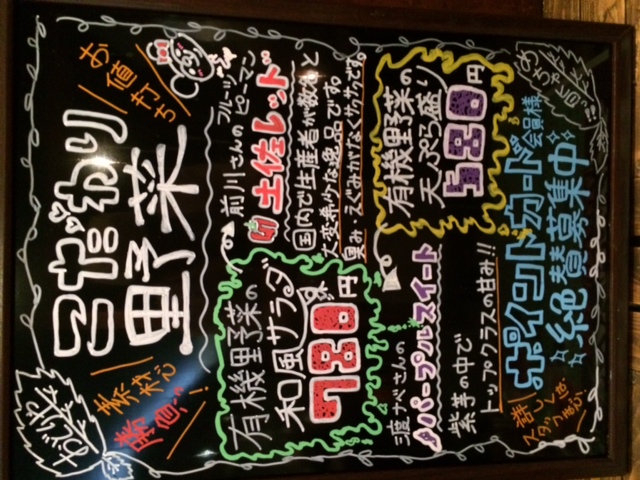 こだわり
里野菜
お値打ち
おどりや
素材が
勝負!
前川さんの
フルーツピーマン
土佐レッド
国内で生産者が数むと
大変希少な逸品です。
臭み、えぐみがなくサクサクです。
有機里野菜の
和風サラダ
780円
有機里野菜の
天ぷら盛り
580円
渡ナベさんの
パープルスイート
紫芋の中で
トップクラスの甘み!!
めちゃトク!!
ポイントカード
会員様
絶賛募集中
詳しくは
スタッフまで